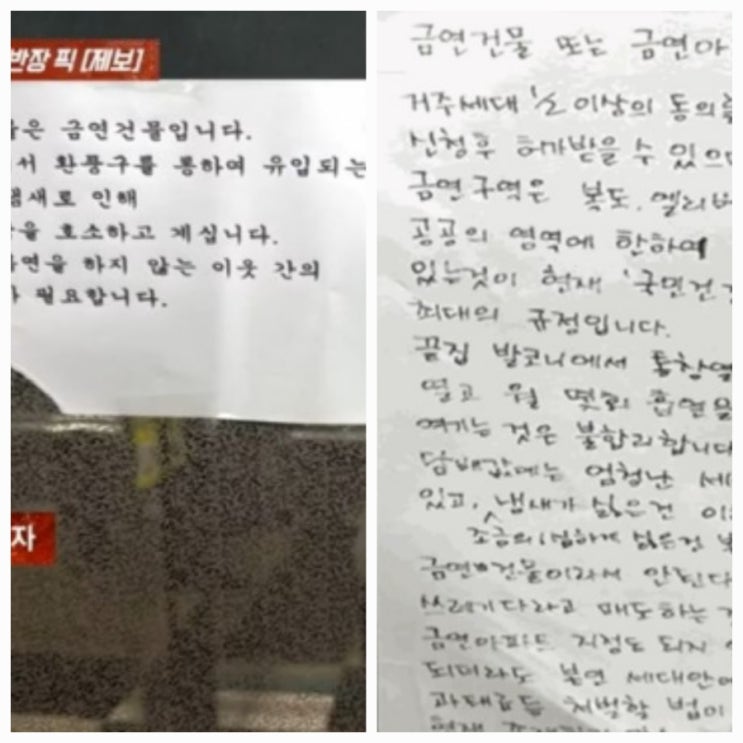 반장 픽 [제보]
은 금연건물입니다.
서 환풍구를 통하여 유입되는
냄새로 인해
을 호소하고 계십니다.
연을 하지 않는 이웃 간의
필요합니다.
자
금연건물 또는 금연아
거주세대 ½ 이상의 동의를
신청후 허가받을 수 있으며
금연구역은 복도, 엘리베
공공의 영역에 한하여
있는것이 현재 '국민건강
최대의 규정입니다.
끝집 발코니에서 통창열
떨고 월 몇회 흡연을
여기는 것은 불합리합니다
담배값에는 엄청난 세
있고, 냄새가 싫은건 이
조금의 싫은건
금연건물이라서 안된다
쓰레기다라고 매도하는
금연아파트 지정도 되지
되더라도 분연 세대안에
과태료등 처벌할 법이
현재